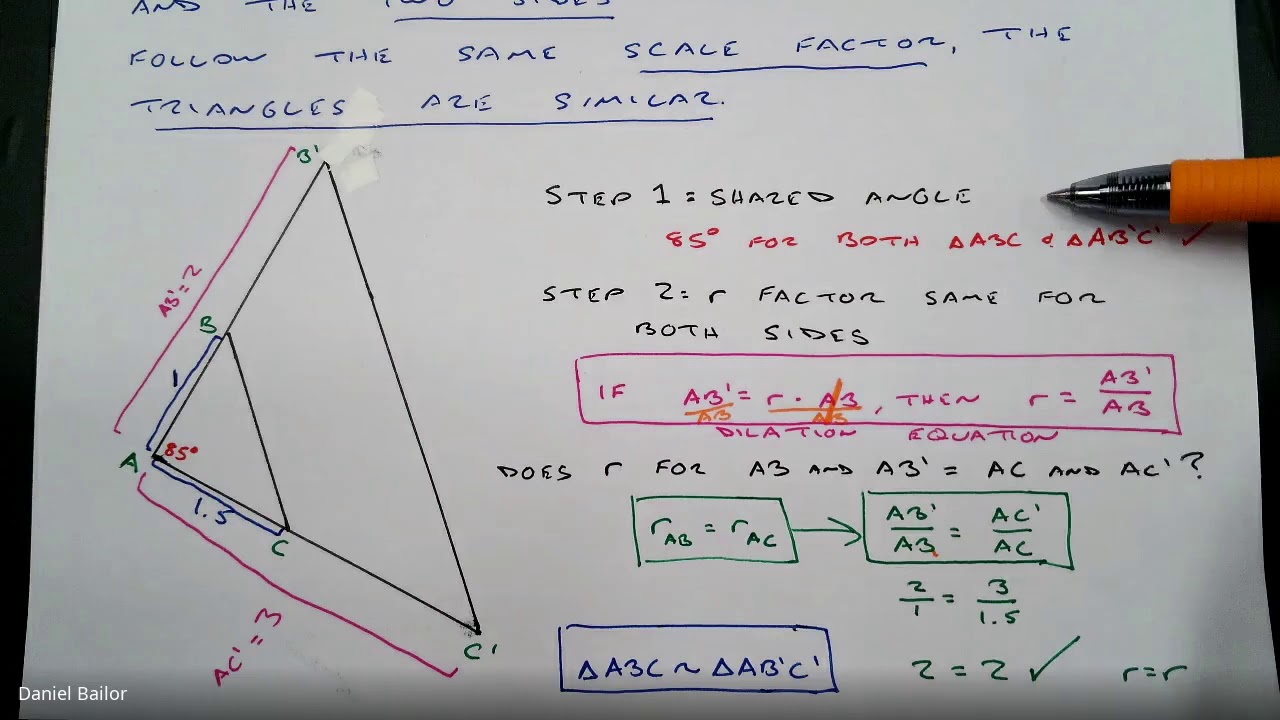 AND THE TWO SIDES
FOLLOW THE SAME SCALE FACTOR, THE
TRIANGLES ARE SIMILAR.
B'
STEP 1 = SHARED ANGLE
85° FOR BOTH ΔABC & ΔAB'C' ✓
AB' = 2
STEP 2 = r FACTOR SAME FOR
BOTH SIDES
B
1
IF AB'/AB = r · AB/AB, THEN r = AB'/AB
DILATION EQUATION
A
85°
DOES r FOR AB AND AB' = AC AND AC'?
1.5
C
r_AB = r_AC → AB'/AB = AC'/AC
2/1 = 3/1.5
AC' = 3
C'
ΔABC ~ ΔAB'C'
2 = 2 ✓ r=r
Daniel Bailor